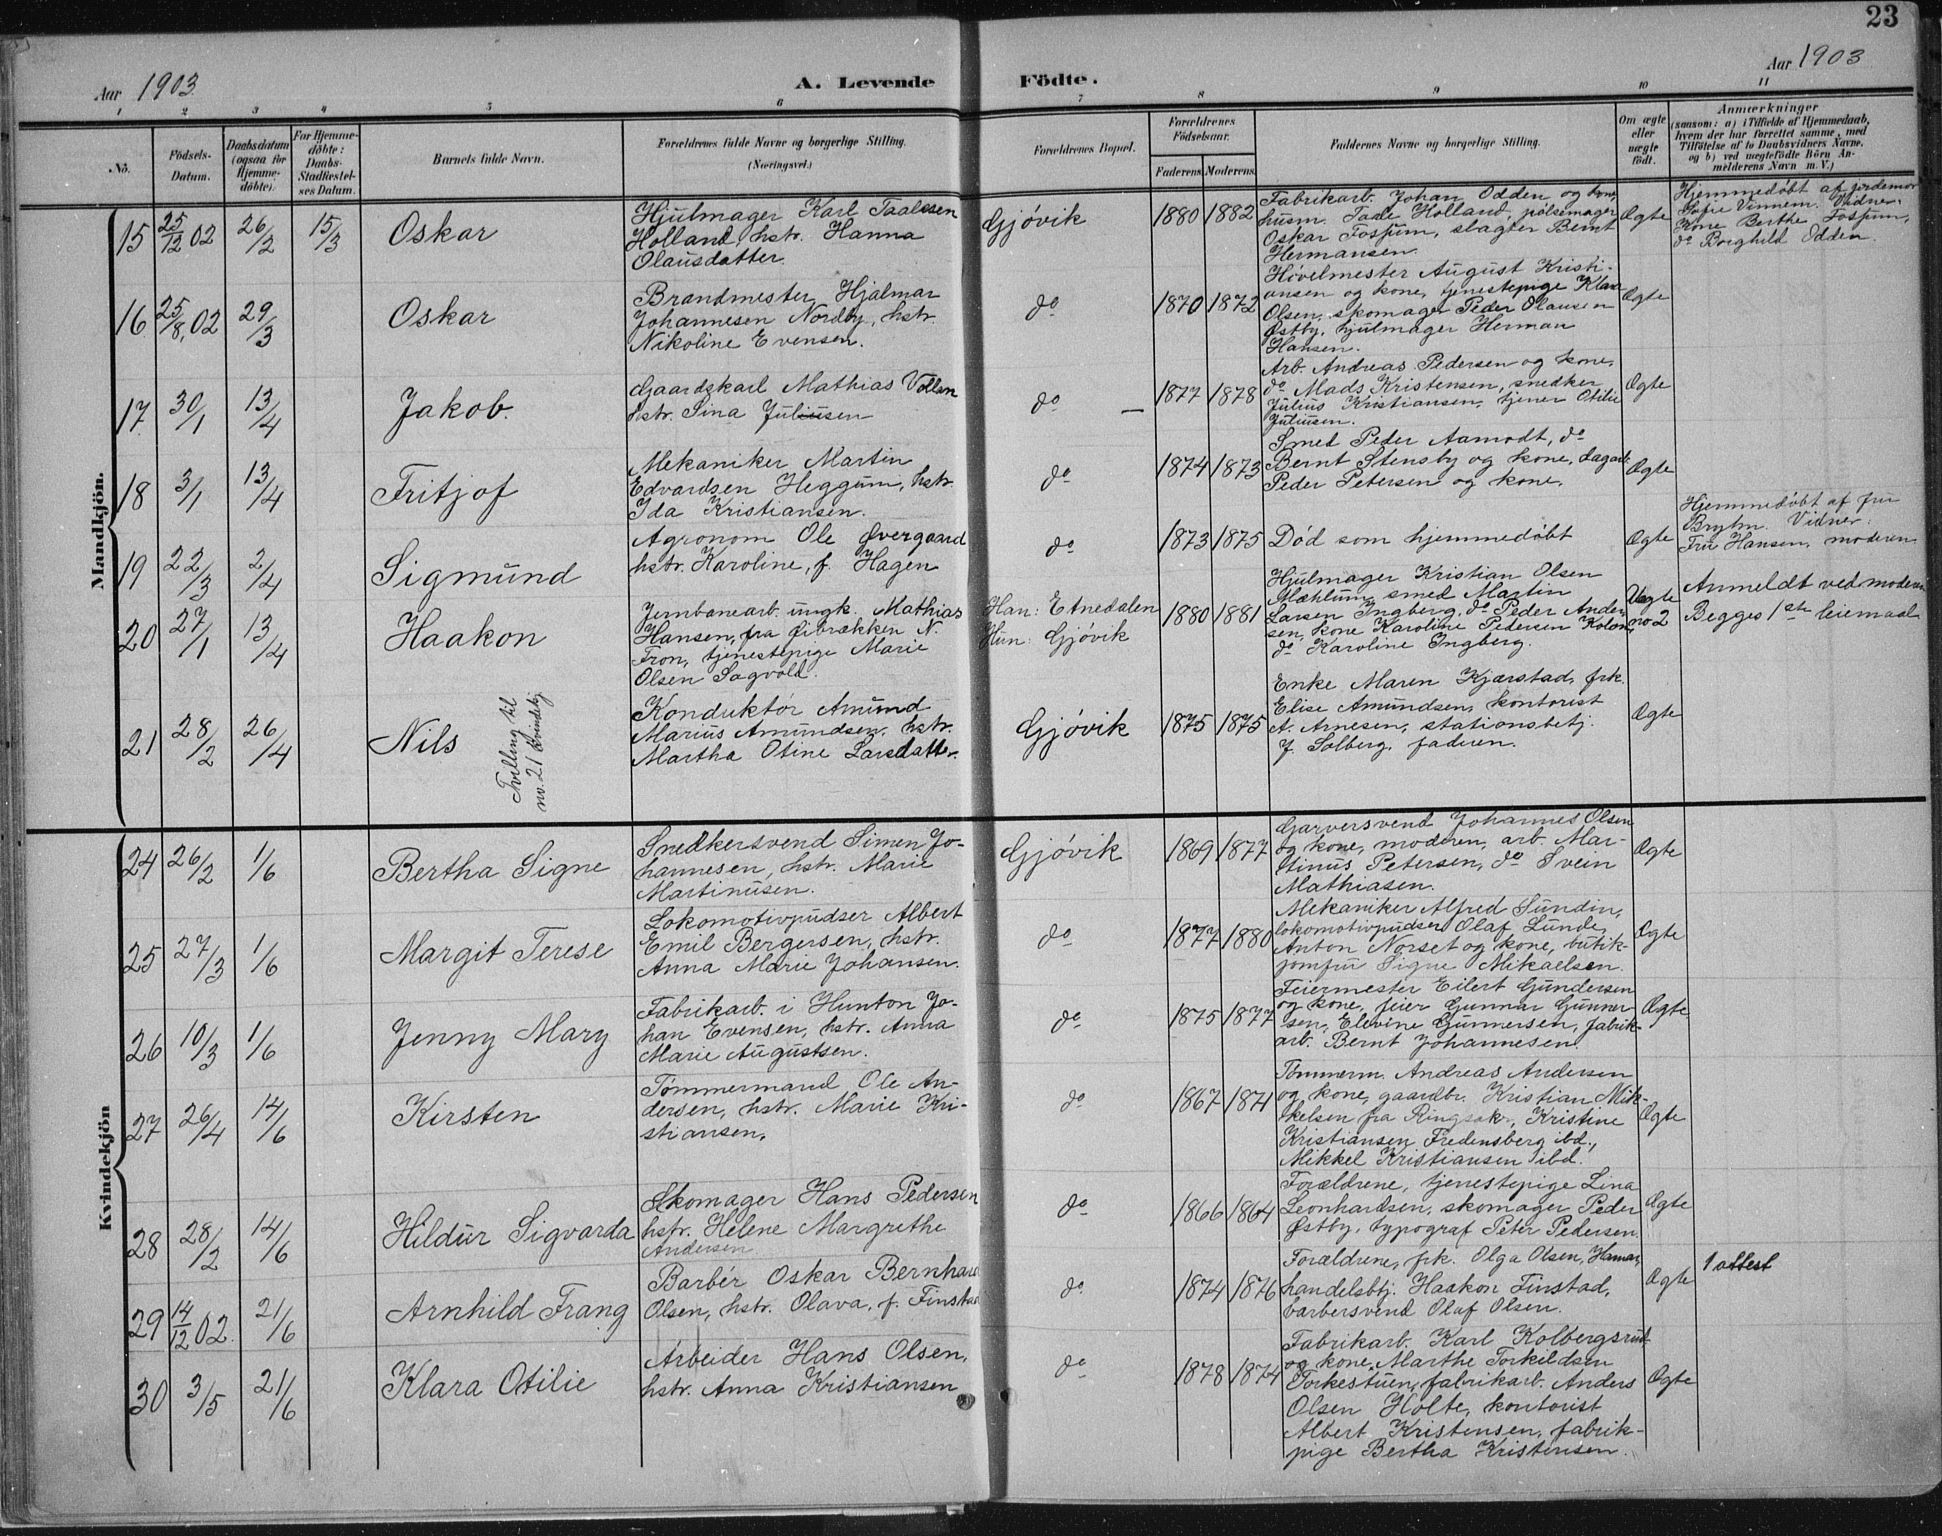 23
Aar 1903
A. Levende
Födte.
Aar 1903
1 2 3 4 5 6 7 8 9 10 11
No.
Födsels-Datum.
Daabsdatum (ogsaa for Hjemmedöbte).
For Hjemmedöbte: Daabs-Stadfæstelses Datum.
Barnets fulde Navn.
Forældrenes fulde Navne og borgerlige Stilling.
(Næringsvei.)
Forældrenes Bopæl.
Forældrenes Födselsaar.
Faderens. Moderens.
Faddernes Navne og borgerlige Stilling.
Om ægte eller uægte födt.
Anmærkninger
(saasom: a) i Tilfælde af Hjemmedaab,
hvem der har forrettet samme, med
Tilföielse af to Daabsvidners Navne,
og b) ved uægtefödte Börn An-
melderens Navn m. V.)
Mandkjön.
15 25/12 02 26/2 15/3 Oskar
Hjulmager Karl Taalesen
Holland, hstr. Hanna
Olausdatter.
Gjøvik 1880 1882
Fabrikarb. Johan Odden og kone,
husm. Tade Holland, pølsemager
Oskar Fossum, slagter Bernt
Hermansen.
Ægte
Hjemmedøbt af jordemor
Sofie Vinnem. Vidner:
Kone Berthe Fossum,
do Borghild Odden.
16 25/8, 02 29/3 Oskar
Brandmester Hjalmar
Johannesen Nordby, hstr.
Nikoline Evensen.
do 1870 1872
Høvelmester August Kristi-
ansen og kone, tjenestepige Klara
Olsen, skomager Peder Olausen
Østby, hjulmager Herman
Hansen.
Ægte
17 30/1 13/4 Jakob.
Gaardskarl Mathias Vollan
hstr. Sina Juliusen
do — 1877 1878
Arb. Andreas Pedersen og kone,
do Mads Kristensen, snedker
Julius Kristiansen, tjener Otilie
Juliusen.
Ægte
18 3/1 13/4 Fritjof
Mekaniker Martin
Edvardsen Heggum, hstr.
Ida Kristiansen.
do 1874 1873
Smed Peder Aamodt, do
Bernt Stensby og kone, dagarb.
Peder Petersen og kone.
Ægte
19 22/3 2/4 Sigmund
Agronom Ole Øvergaard
hstr. Karoline, f. Hagen
do 1873 1875
Død som hjemmedøbt
Ægte
Hjemmedøbt af fru
Bryhn. Vidner:
Fru Hansen, moderen
20 27/1 13/4 Haakon
Jernbanearb. ungk. Mathias
Hansen, fra Øibrækken N.
Fron, tjenestepige Marie
Olsen Sagvold.
Han: Etnedalen
Hun: Gjøvik
1880 1881
Hjulmager Kristian Olsen
Mæhlum, smed Martin
Larsen Ingberg, do Peder Ander-
sen, kone Karoline Pedersen Kolon,
do Karoline Ingberg.
Uægte
no 2
Anmeldt ved moderen
Begges 1ste leiemaal
21 28/2 26/4 Nils
Tvilling til
no. 21 kvindekj.
Konduktør Amund
Marius Amundsen, hstr.
Martha Otine Larsdatter.
Gjøvik 1875 1875
Enke Maren Kjærstad, frk.
Elise Amundsen, kontorist
A. Arnesen, stationsbetj.
J. Solberg, faderen.
Ægte
Kvindekjön
24 26/2 1/6 Bertha Signe
Snedkersvend Simen Jo-
hannesen, hstr. Marie
Martinusen.
Gjøvik 1869 1877
Garversvend Johannes Olsen
og kone, moderen, arb. Mar-
tinus Petersen, do Svein
Mathiasen.
Ægte
25 27/3 1/6 Margit Terese
Lokomotivpudser Albert
Emil Bergersen, hstr.
Anna Marie Johansen.
do 1877 1880
Mekaniker Alfred Sundin,
lokomotivpudser Olaf Lunde,
Anton Norset og kone, butik-
jomfru Signe Mikaelsen.
Ægte
26 10/3 1/6 Jenny Mary
Fabrikarb. i Hunton Jo-
han Evensen, hstr. Anna
Marie Augustsen.
do 1875 1877
Feiermester Eilert Gundersen
og kone, feier Gunnar Gunner-
sen, Elevine Gunnersen, fabrik-
arb. Bernt Johannesen.
Ægte
27 26/4 14/6 Kirsten
Tømmermand Ole An-
dersen, hstr. Marie Kri-
stiansen.
do 1867 1871
Tømmerm. Andreas Andersen
og kone, gaardbr. Kristian Mik-
kelsen fra Ringsak., Kristine
Kristiansen Fredensberg ibd.,
Mikkel Kristiansen ibd.
Ægte
28 28/2 14/6 Hildur Sigvarda
Skomager Hans Pedersen
hstr. Helene Margrethe
Andersen
do 1866 1864
Forældrene, tjenestepige Lina
Leonhardsen, skomager Peder
Østby, typograf Peter Pedersen.
Ægte
29 14/12 02. 21/6 Arnhild Frang
Barbér Oskar Bernhard
Olsen, hstr. Olava, f. Finstad
do 1874 1876
Forældrene, frk. Olga Olsen, Hamar,
handelsbtj. Haakon Finstad,
barbersvend Olaf Olsen.
Ægte
1 attest
30 3/5 21/6 Klara Otilie
Arbeider Hans Olsen,
hstr. Anna Kristiansen
do 1878 1874
Fabrikarb. Karl Kolbergsrud
og kone, Marthe Torkildsen
Torkestuen, fabrikarb. Anders
Olsen Holte, kontorist
Albert Kristensen, fabrik-
pige Bertha Kristensen.
Ægte